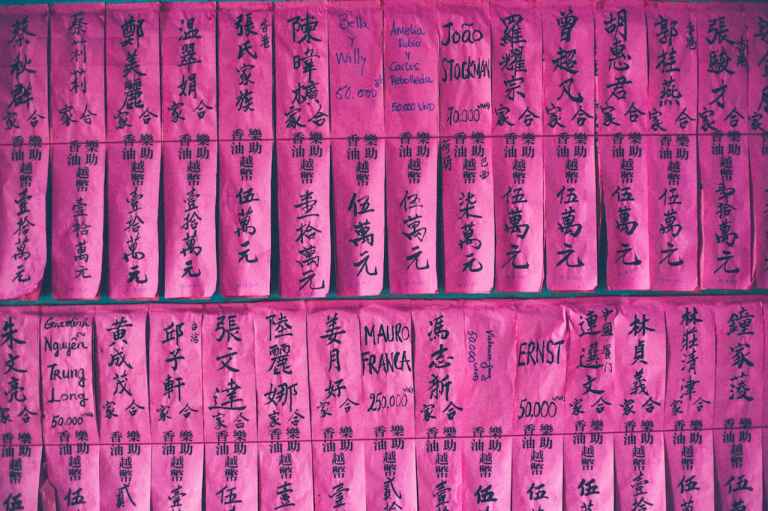 蔡秋群
合家
樂助香油
越幣
壹拾萬元
蔡莉莉
合家
樂助香油
越幣
壹拾萬元
鄭美麗
合家
樂助香油
越幣
壹拾萬元
溫翠娟
合家
樂助香油
越幣
壹拾萬元
香港
張氏家族
樂助香油
越幣
伍萬元
陳
合家
樂助香油
越幣
壹拾萬元
Bella
Willy
50.000đ
樂助香油
越幣
伍萬元
Amelia
Rubio
y
Carlos
Rebolleda
50.000 VND
樂助香油
越幣
伍萬元
João
STOCKMAN
70.000 VND
巴西
樂助香油
越幣
柒萬元
羅耀宗
合家
樂助香油
越幣
伍萬元
曾超凡
合家
樂助香油
越幣
伍萬元
胡惠君
合家
樂助香油
越幣
伍萬元
香港
郭桂燕
合家
樂助香油
越幣
伍萬元
張駿才
合家
樂助香油
越幣
貳拾萬元
朱文亮
合家
樂助香油
越幣
伍
Nguyễn
Trung
Long
50.000 VND
樂助香油
越幣
伍
黃成茂
合家
樂助香油
越幣
貳
台灣
邱子軒
合家
樂助香油
越幣
壹
張文達
合家
樂助香油
越幣
伍
陸麗娜
合家
樂助香油
越幣
壹
姜月好
合家
樂助香油
越幣
壹
MAURO
FRANCA
250.000 VND
樂助香油
越幣
貳拾
馮志新
合家
樂助香油
越幣
壹
50.000 VND
樂助香油
越幣
伍萬
ERNST
50.000 VND
樂助香油
越幣
伍
中國厦门
連選文
合家
樂助香油
越幣
伍萬
林貞義
合家
樂助香油
越幣
壹拾
林莊清津
合家
樂助香油
越幣
伍萬
鐘家菱
樂助香油
越幣
伍萬